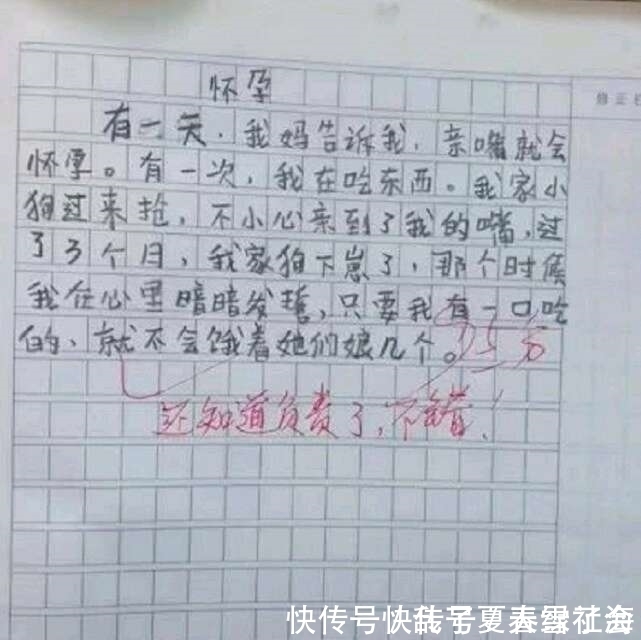 怀孕
有一天，我妈告诉我，亲嘴就会
怀孕。有一次，我在吃东西。我家小
狗过来抢，不小心亲到了我的嘴，过
了3个月，我家狗下崽了，那个时候
我在心里暗暗发誓，只要我有一口吃
的、就不会饿着她们娘几个。
还知道负责了，不错！
快传号